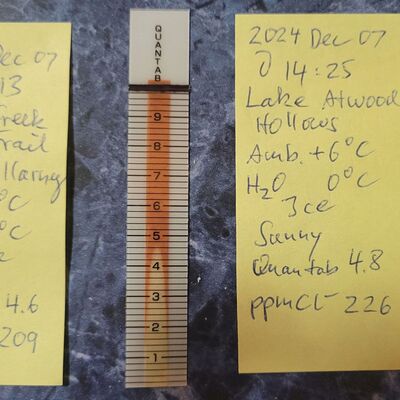 Dec 07
13
Creek
Trail
°C
°C
4.6
209
QUANTAB
9
8
7
6
5
4
3
2
1
2024 Dec 07
14:25
Lake Atwood
Hollows
Amb. +6°C
H₂O 0°C
Ice
Sunny
Quantab 4.8
ppmCl⁻ 226